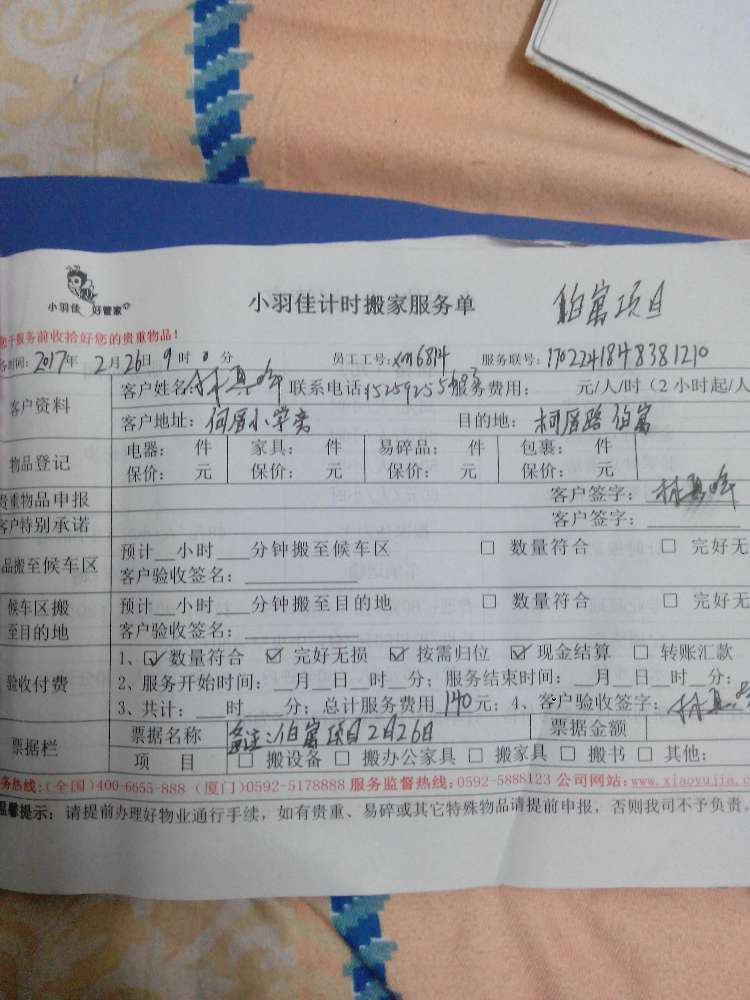 小羽佳 好管家
小羽佳计时搬家服务单 伯寓项目
您于服务前收拾好您的贵重物品!
务时间: 2017年 2月26日 9时0分 员工工号: xm6814 服务联号: 1702241848381210
客户资料
客户姓名: 林真 联系电话: 服务费用: 元/人/时(2小时起/人
客户地址: 何厝小学旁 目的地: 柯厝路伯寓
物品登记
电器: 件 家具: 件 易碎品: 件 包裹: 件
保价: 元 保价: 元 保价: 元 保价: 元
贵重物品申报 客户签字: 林真
客户特别承诺 客户签字:
品搬至候车区
预计__小时__分钟搬至候车区 □ 数量符合 □ 完好无
客户验收签名:
候车区搬至目的地
预计__小时__分钟搬至目的地 □ 数量符合 □ 完好无
客户验收签名:
验收付费
1、☑数量符合 ☑完好无损 ☑按需归位 ☑现金结算 □ 转账汇款
2、服务开始时间: __月__日__时__分; 服务结束时间: __月__日__时__分;
3、共计: __时__分; 总计服务费用140元; 4、客户验收签字: 林真
票据栏
票据名称 备注:伯寓项目2月26日 票据金额
项 目 □ 搬设备 □ 搬办公家具 □ 搬家具 □ 搬书 □ 其他:
务热线:(全国)400-6655-888 (厦门)0592-5178888 服务监督热线:0592-5888123 公司网站:www.xiaoyujia.c
温馨提示: 请提前办理好物业通行手续, 如有贵重、易碎或其它特殊物品请提前申报, 否则我司不予负责。